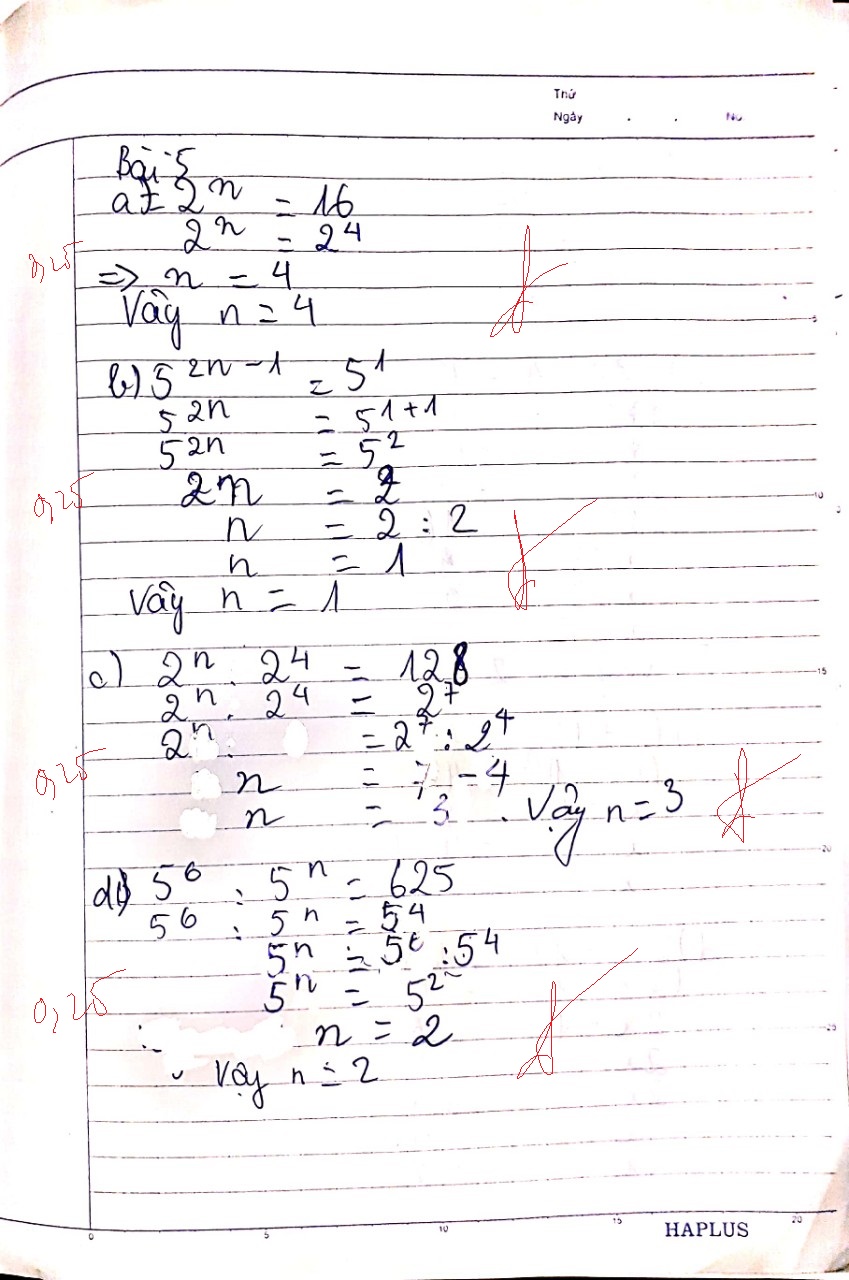 Thứ
Ngày . . No
Bài 5
a) 2ⁿ = 16
2ⁿ = 2⁴
0,25
=> n = 4
Vậy n = 4
b) 5²ⁿ⁻¹ = 5¹
5²ⁿ = 5¹⁺¹
5²ⁿ = 5²
0,25
2n = 2
n = 2 : 2
n = 1
Vậy n = 1
c) 2ⁿ . 2⁴ = 128
2ⁿ . 2⁴ = 2⁷
2ⁿ = 2⁷ : 2⁴
0,25
n = 7 - 4
n = 3 . Vậy n = 3
d) 5⁶ : 5ⁿ = 625
5⁶ : 5ⁿ = 5⁴
5ⁿ = 5⁶ : 5⁴
5ⁿ = 5²
0,25
n = 2
Vậy n = 2
5
10
15
20
25
0 5 10 15 20
HAPLUS